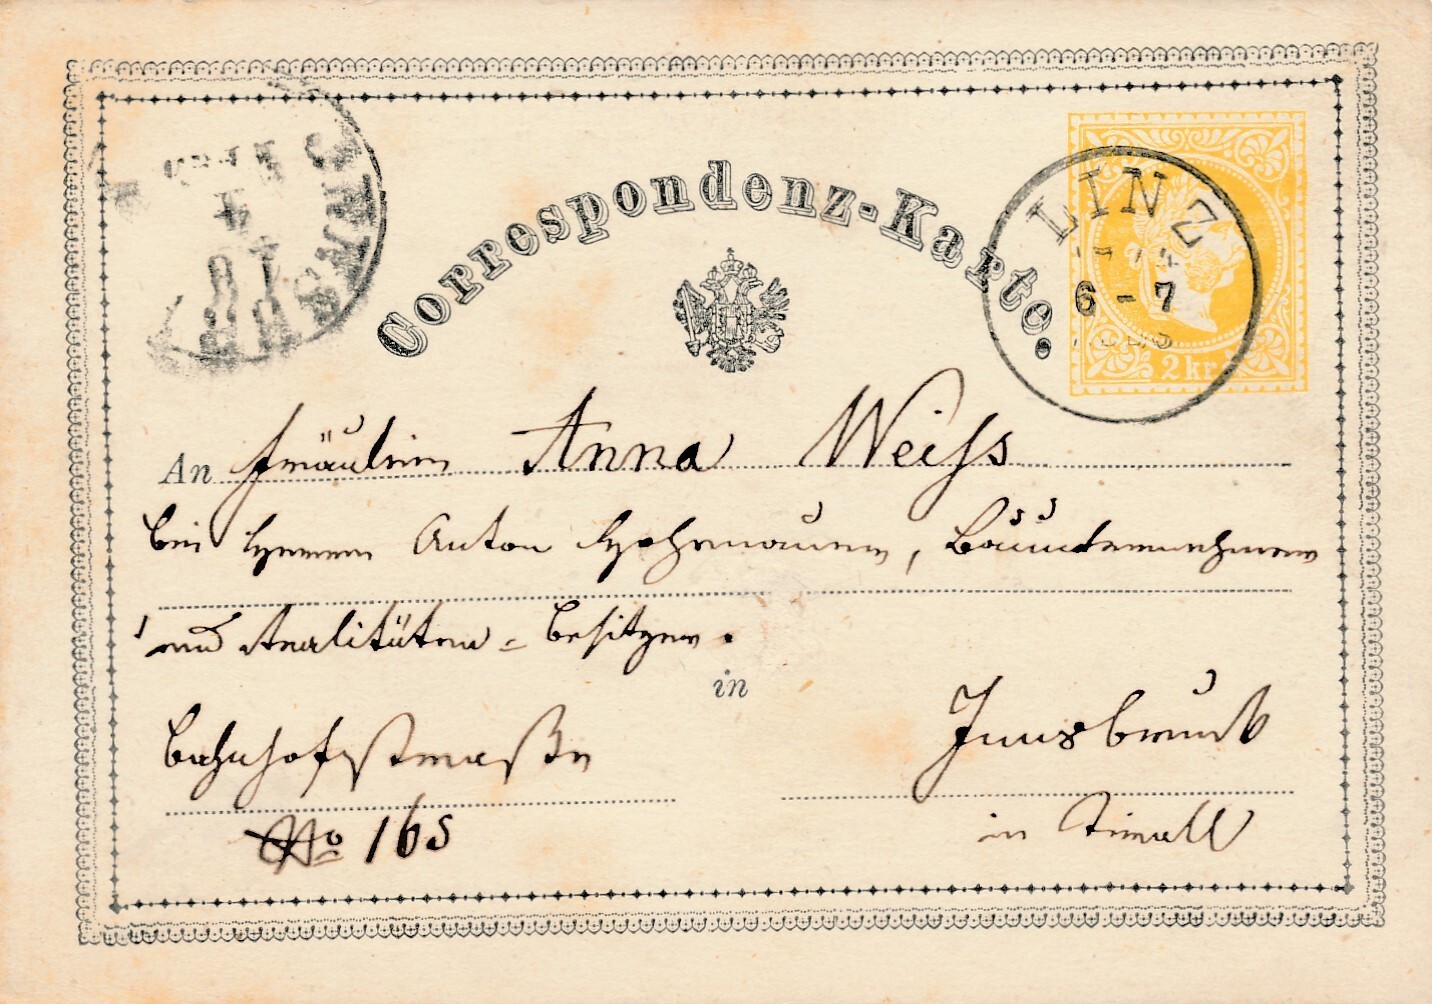 Correspondenz-Karte.
LINZ
6 - 7
2 kr.
An Fräulein Anna Weiss
bei Herrn Anton Hehrmaurer, Bauunternehmer
und Realitäten = besitzer.
in
Bahnhofstraße
Innsbruck
No 165
in Tirol